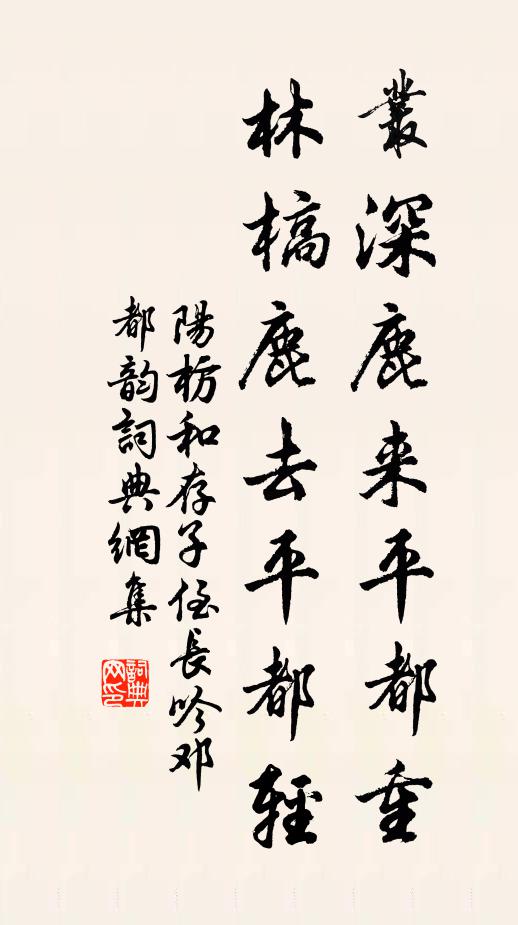 叢深鹿来平都重
林槁鹿去平都輕
陽枋和存子侄長吟邓
都韵詞典網集
詞典網印